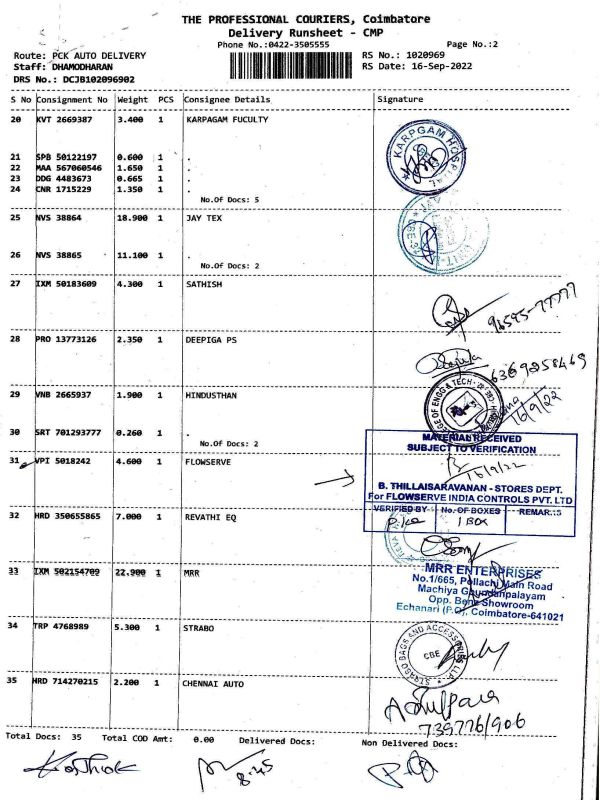 THE PROFESSIONAL COURIERS, Coimbatore
Delivery Runsheet - CMP
Phone No.:0422-3505555 Page No.:2
Route: PCK AUTO DELIVERY RS No.: 1020969
Staff: DHAMODHARAN RS Date: 16-Sep-2022
DRS No.: DCJB102096902
S No Consignment No Weight PCS Consignee Details Signature
20 KVT 2669387 3.400 1 KARPAGAM FUCULTY
KARPGAM HOSPITAL
21 SPB 50122197 0.600 1 .
22 MAA 567060546 1.650 1 .
23 DDG 4483673 0.665 1 .
24 CNR 1715229 1.350 1 .
No.Of Docs: 5
25 NVS 38864 18.900 1 JAY TEX
26 NVS 38865 11.100 1 .
No.Of Docs: 2
27 IXM 50183609 4.300 1 SATHISH
96595-77777
28 PRO 13773126 2.350 1 DEEPIGA PS
6369258469
29 VNB 2665937 1.900 1 HINDUSTHAN
16/9/22
30 SRT 701293777 0.260 1 .
No.Of Docs: 2
MATERIAL RECEIVED
SUBJECT TO VERIFICATION
31 VPI 5018242 4.600 1 FLOWSERVE
16/9/22
B. THILLAISARAVANAN - STORES DEPT.
For FLOWSERVE INDIA CONTROLS PVT. LTD
VERIFIED BY No. OF BOXES REMARKS
1 BOX
32 HRD 350655865 7.000 1 REVATHI EQ
33 IXM 502154709 22.900 1 MRR
MRR ENTERPRISES
No.1/665, Pollachi Main Road
Machiya Goundanpalayam
Opp. Benz Showroom
Echanari (P.O), Coimbatore-641021
34 TRP 4768989 5.300 1 STRABO
STRABO BAGS AND ACCESSORIES LLP
CBE
35 HRD 714270215 2.200 1 CHENNAI AUTO
739776/906
Total Docs: 35 Total COD Amt: 0.00 Delivered Docs: Non Delivered Docs:
Karthick
8.45